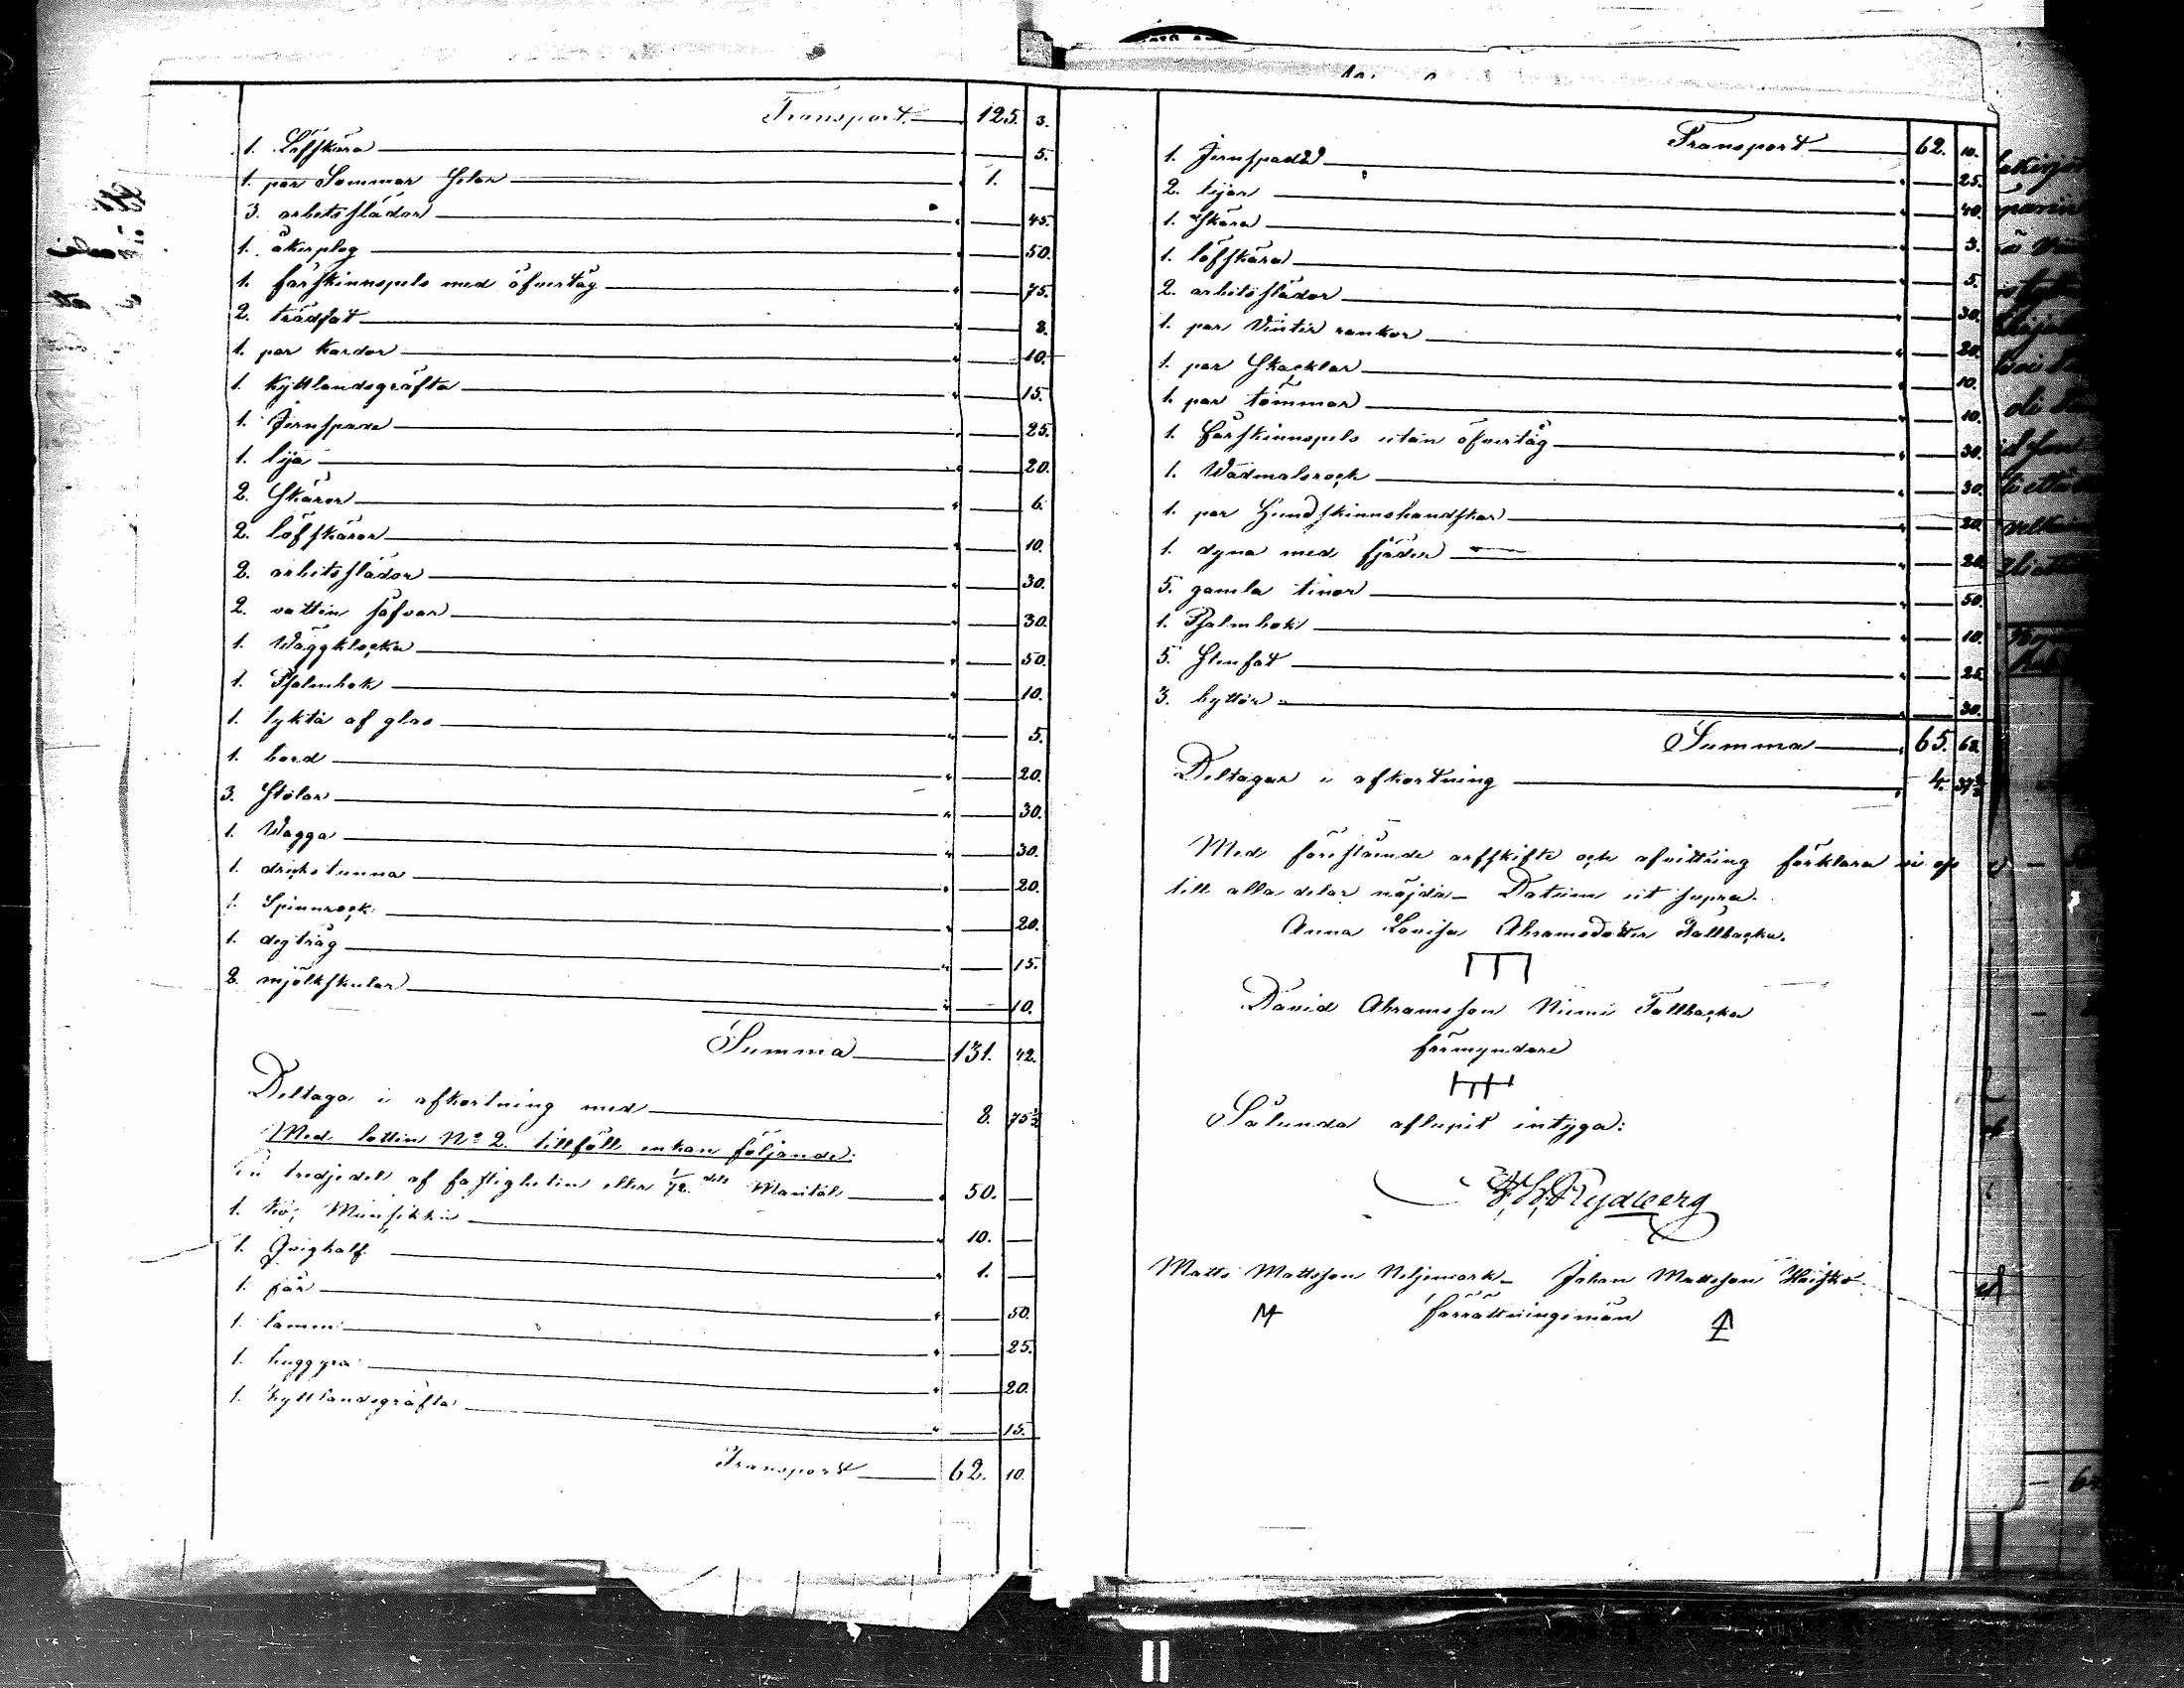 Transport 125. 3.
1. Löfskära " — 5.
1. par Sommar hölar " 1. —
3. arbetsslädor " — 45.
1. åkerplog " — 50.
1. fårskinnspels med öfvertåg " — 75.
2. trädfat " — 8.
1. par kardor " — 10.
1. kyttlandsgräfta " — 15.
1. Jernspade " — 25.
1. lija " — 20.
2. Skäror " — 6.
2. löfskäror " — 10.
2. arbetsslädor " — 30.
2. vatten såfvar " — 30.
1. Wäggklocka " — 50.
1. Psalmbok " — 10.
1. lykta af glas " — 5.
1. bord " — 20.
3. Stolar " — 30.
1. Wagga " — 30.
1. drickstunna " — 20.
1. Spinnrock " — 20.
1. degtråg " — 15.
2. mjölkskålar " — 10.
Summa 131. 42.
Deltaga i afkortning med 8. 75 1/2
Med lotten No 2. tillföll enkan följande:
En tredjedel af fastigheten eller 1/72 dels Mantal " 50. —
1. ko, Mansikki " 10. —
1. Qvigkalf " 1. —
1. får " — 50.
1. lamm " — 25.
1. huggyxa " — 20.
1. kyttlandsgräfta " — 15.
Transport 62. 10.
Transport 62. 10.
1. Jernspade " — 25.
2. lijar " — 40.
1. Skära " — 3.
1. löfskära " — 5.
2. arbetsslädor " — 30.
1. par Vinter rankor " — 20.
1. par Skacklar " — 10.
1. par tömmar " — 10.
1. Fårskinnspels utan öfvertåg " — 30.
1. Wadmalsrock " — 30.
1. par Hundskinnshandskar " — 20.
1. dyna med fjäder " — 20.
5. gamla tinor " — 50.
1. Psalmbok " — 10.
5. Stenfat " — 25.
3. byttor " — 30.
Summa " 65. 68.
Deltagar i afkortning " 4. 37 2/3
Med förestående arfskifte och afvittring förklara vi oss
till alla delar nöjda – Datum ut supra.
Anna Lovisa Abramsdotter Tallbacka.
David Abramsson Niemi Tallbacka
förmyndare
Sålunda aflupit intyga:
Rydberg
Matts Mattsson Niljemark – Johan Mattsson
förrättningsmän